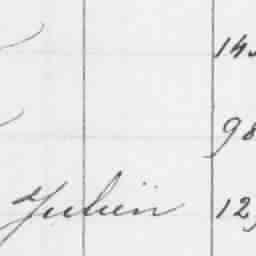 14
98
Julien 12